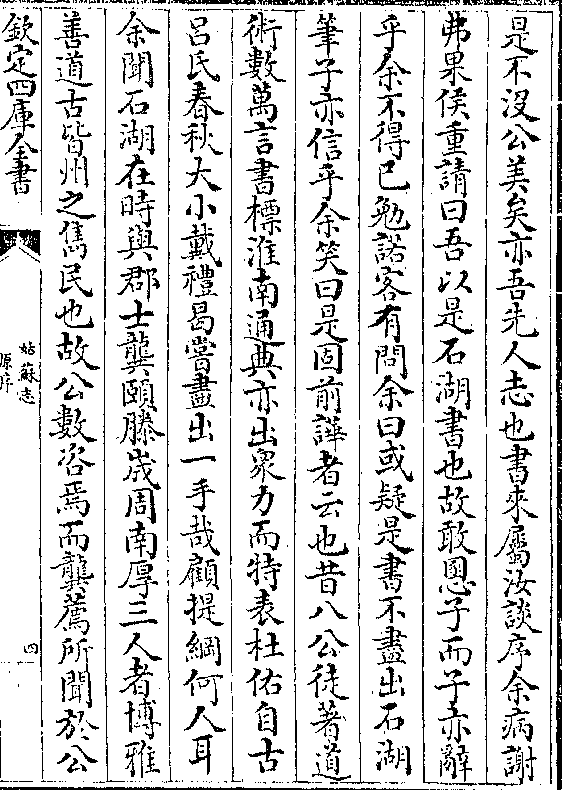 是不沒公美矣亦吾先人志也書來屬汝談序余病謝
弗果侯重請曰吾以是石湖書也故敢慁子而子亦辭
乎余不得已勉諾客有問余曰或疑是書不盡出石湖
筆子亦信乎余笑曰是固前譁者云也昔八公徒著道
術數萬言書標淮南通典亦出衆力而特表杜佑自古
呂氏春秋大小戴禮曷嘗盡出一手哉顧提綱何人耳
余聞石湖在時與郡士龔頤滕宬周南厚三人者博雅
善道古皆州之雋民也故公數咨焉而龔薦所聞於公
欽定四庫全書
姑蘇志
原序
四